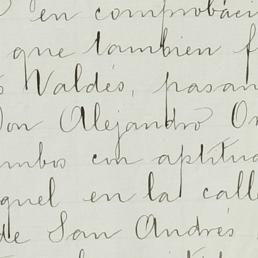 en comprobaci
que tambien f
Valdés, pasan
Don Alejandro Or
mbos con aptitud
quel en la calle
de San Andrés